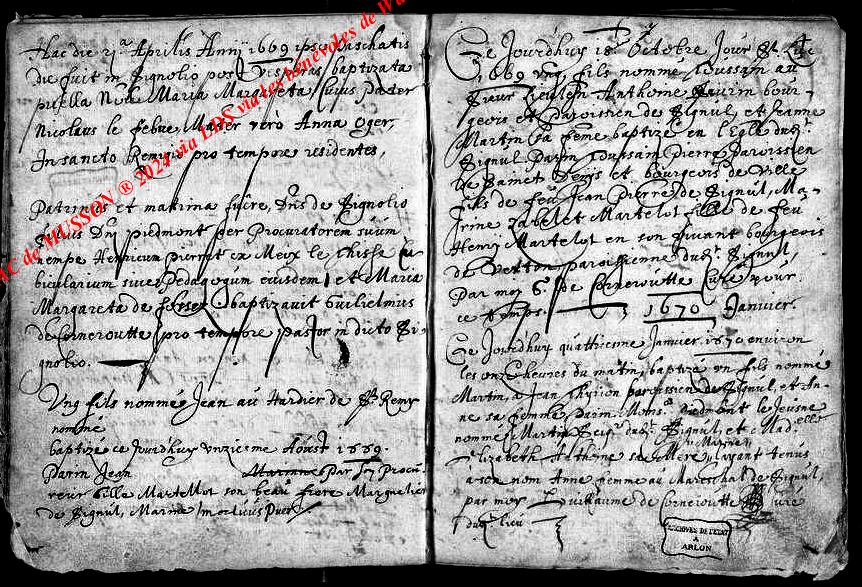 Hac die 21a Aprilis Anni 1669 ipso Paschatis
die fuit in Signolio post vesperas baptizata
puella Noie Maria Margareta, cuius Pater
Nicolaus le febue Mater verò Anna Oger,
In sancto Remigio pro tempore residentes,
Patrinus et matrina fuêre, Dns de Signolio
Dni Piedmont per Procuratorem suum
nempe Henricum pierret ex Meux le
bicularium sive Pedagogum eiusdem et Maria
Margareta de baptizavit Guilielmus
de Corneroutte pro tempore Pastor in dicto Si-
gnolio.
Vng fils nommé Jean au Hardier de St Remy
nomme
baptizé ce Jourdhuy vnziesme Aoust 1669.
Parin Jean Par son Procu-
reur Gille Martelot son beau frere Marguelier
de Signul, Marine
Ce Jourdhuy 18e Octobre Jour St
1669 vng fils nommé Toussain au
Sieur Anthoine bour-
geois et Paroissien de Signul, et Jeanne
Martin sa feme baptizé en l'Eglê dudt
Signul Parin Toussain Pierre Paroissien
de Sainct Denis et bourgeois de Ville
fils de feu Jean Pierre de Signul, Ma-
rine Martelot fille de feu
Henry Martelot en son vivant bourgeois
de paroissienne dudt Signul,
Par moy G. de Corneroutte Curé pour
ce temps.
1670 Janvier.
Ce Jourdhuy quattriesme Janvier 1670 environ
les onze heures du matin, baptizé vn fils nommé
Martin, a Jean paroissien de Signul, et An-
ne sa femme Parin Monsr Piedmont le Jeusne
nommé Martin Seigr dudt Signul, et Madelle
Marine
Elizabeth sa Mere layant tenus
a son nom Anne femme au Mareschal de Signul,
par moy Guillaume de Corneroutte Curé
dudt lieu
ARCHIVES DE L'ETAT
A
ARLON
AC de MUSSON ® 2024 via LDS via les bénévoles de